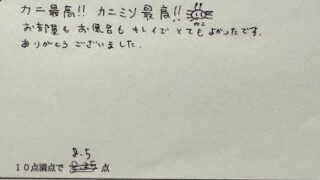 カニ最高!! カニミソ最高!!
カニ
お部屋もお風呂もキレイでとてもよかったです。
ありがとうございました。
8.5
10点満点で 8.25 点